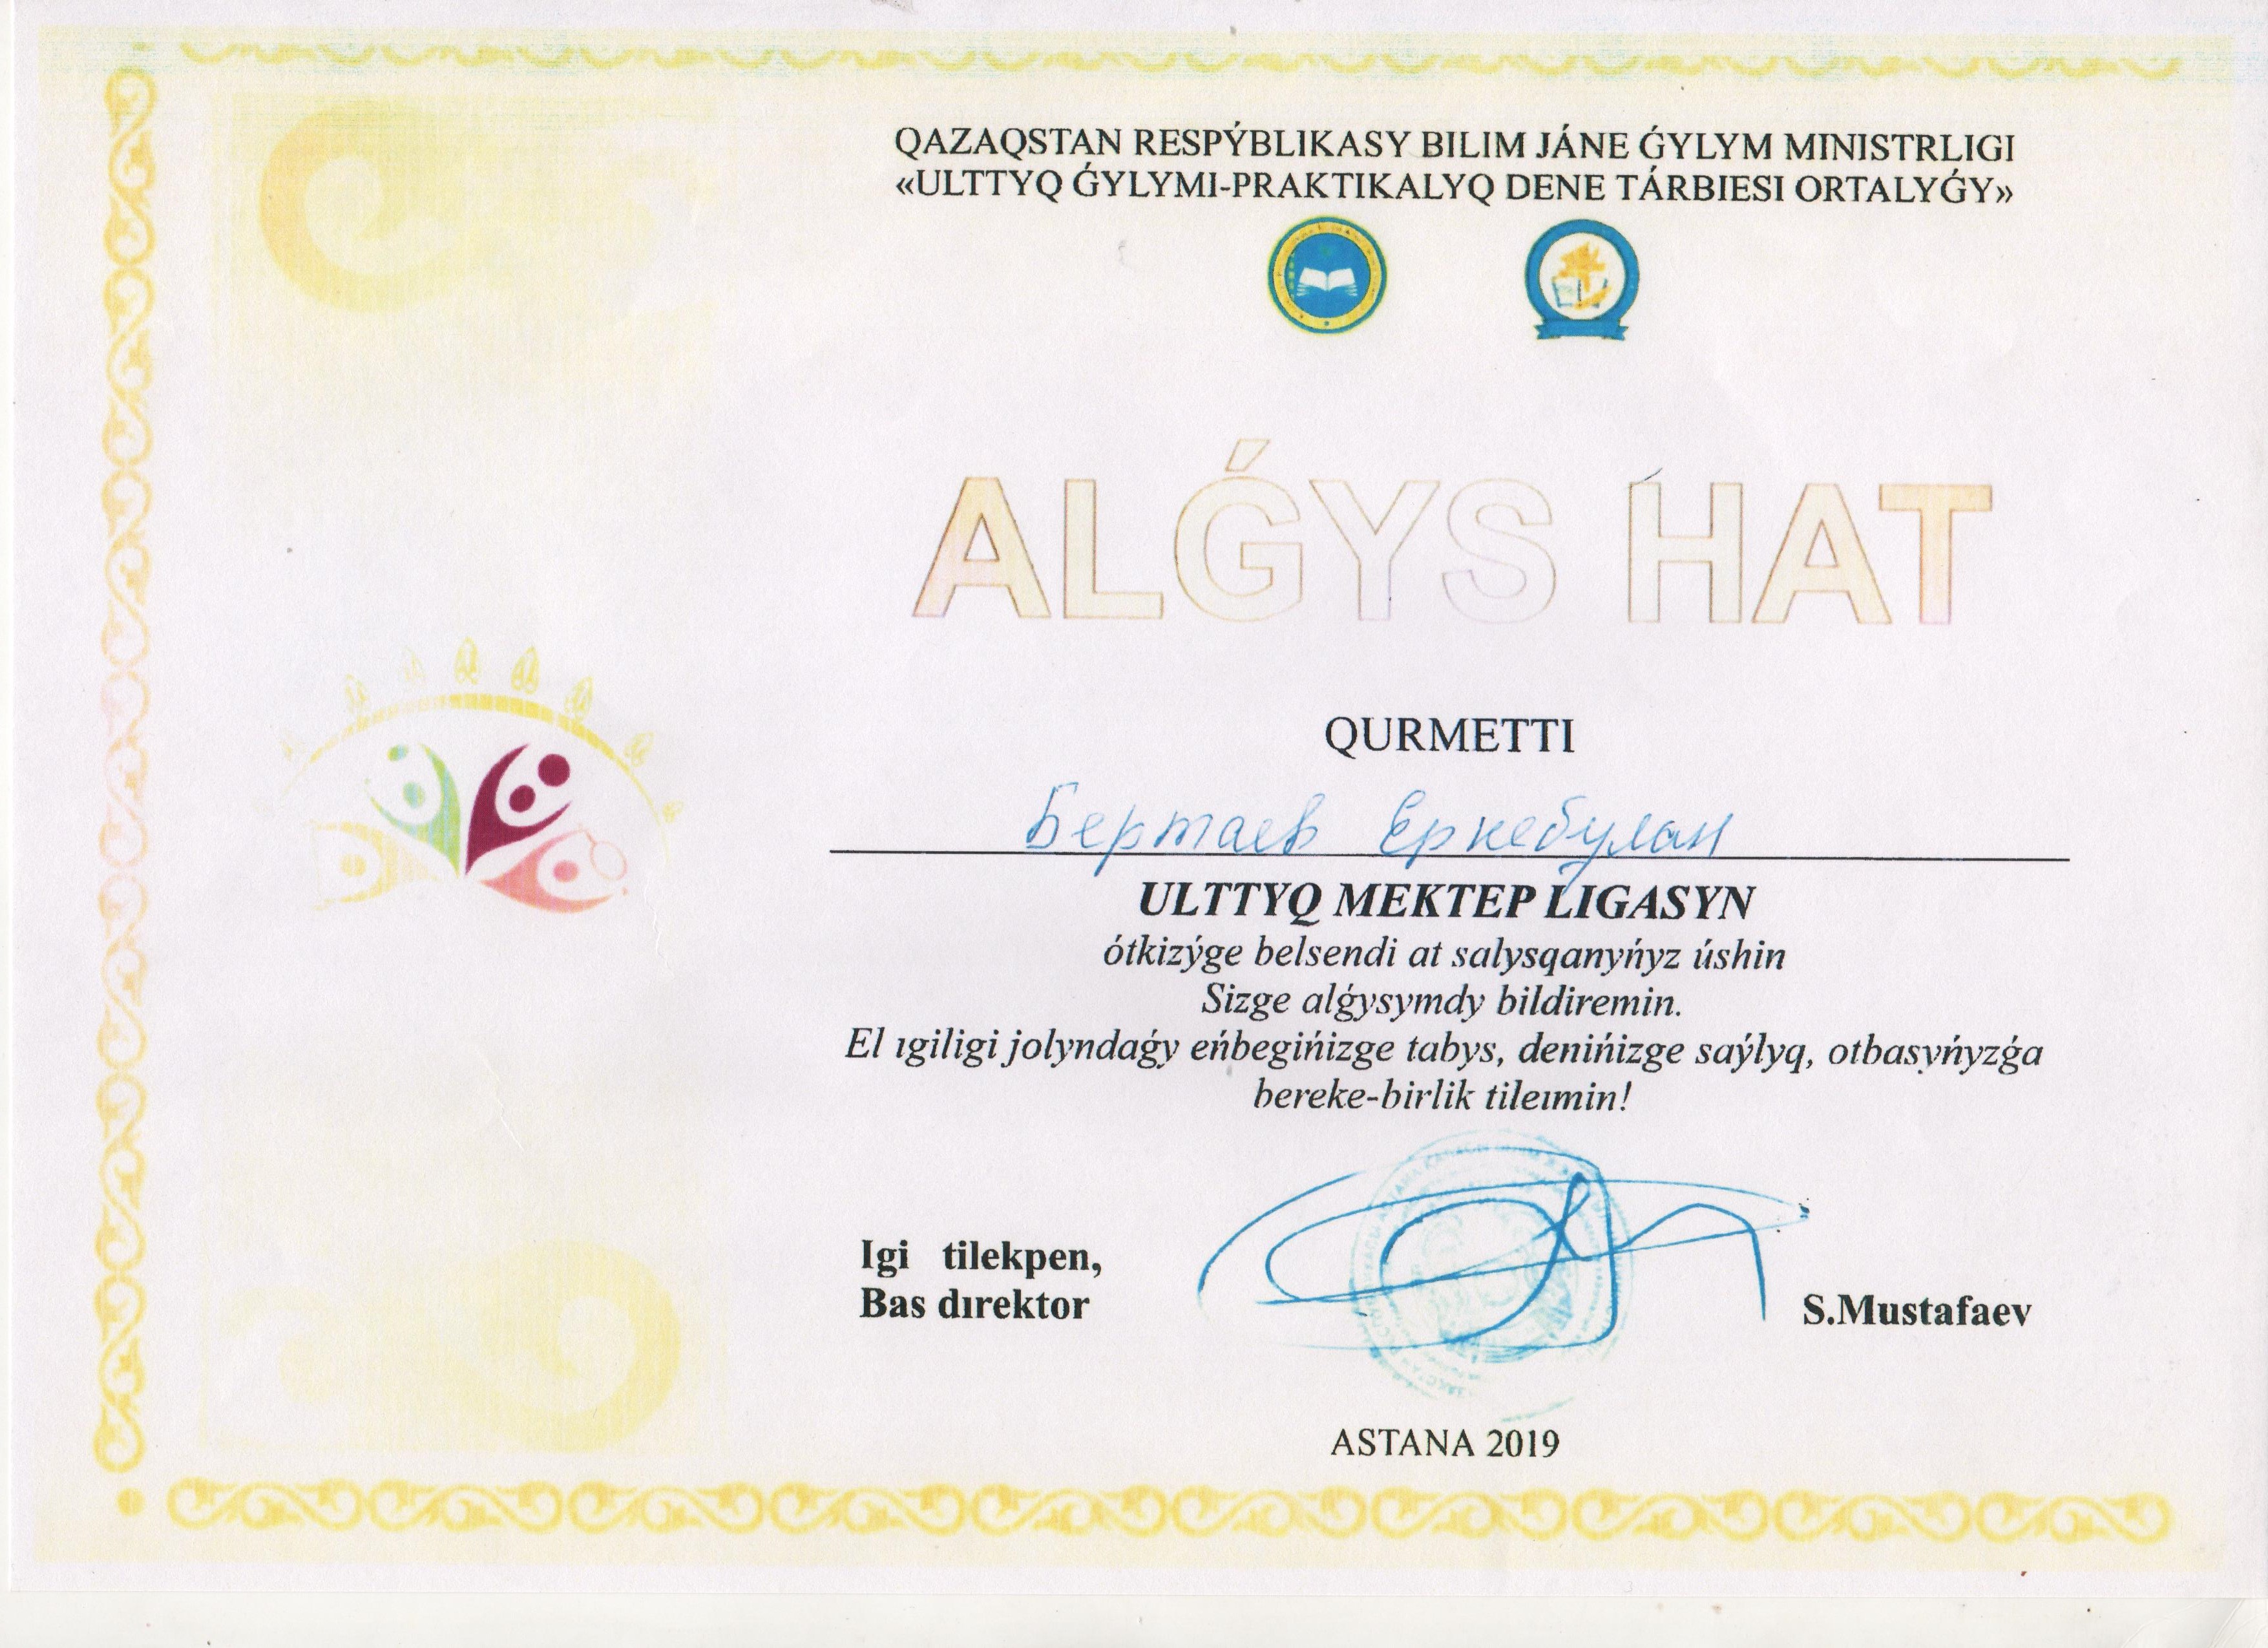 QAZAQSTAN RESPÝBLIKASY BILIM JÁNE ǴYLYM MINISTRLIGI
«ULTTYQ ǴYLYMI-PRAKTIKALYQ DENE TÁRBIESI ORTALYǴY»
ALǴYS HAT
QURMETTI
Бертаев Еркебулан
ULTTYQ MEKTEP LIGASYN
ótkizýge belsendi at salysqanyńyz úshin
Sizge alǵysymdy bildiremin.
El ıgiligi jolyndaǵy eńbegińizge tabys, denińizge saýlyq, otbasyńyzǵa
bereke-birlik tileımin!
Igi tilekpen,
Bas dırektor
S.Mustafaev
ASTANA 2019